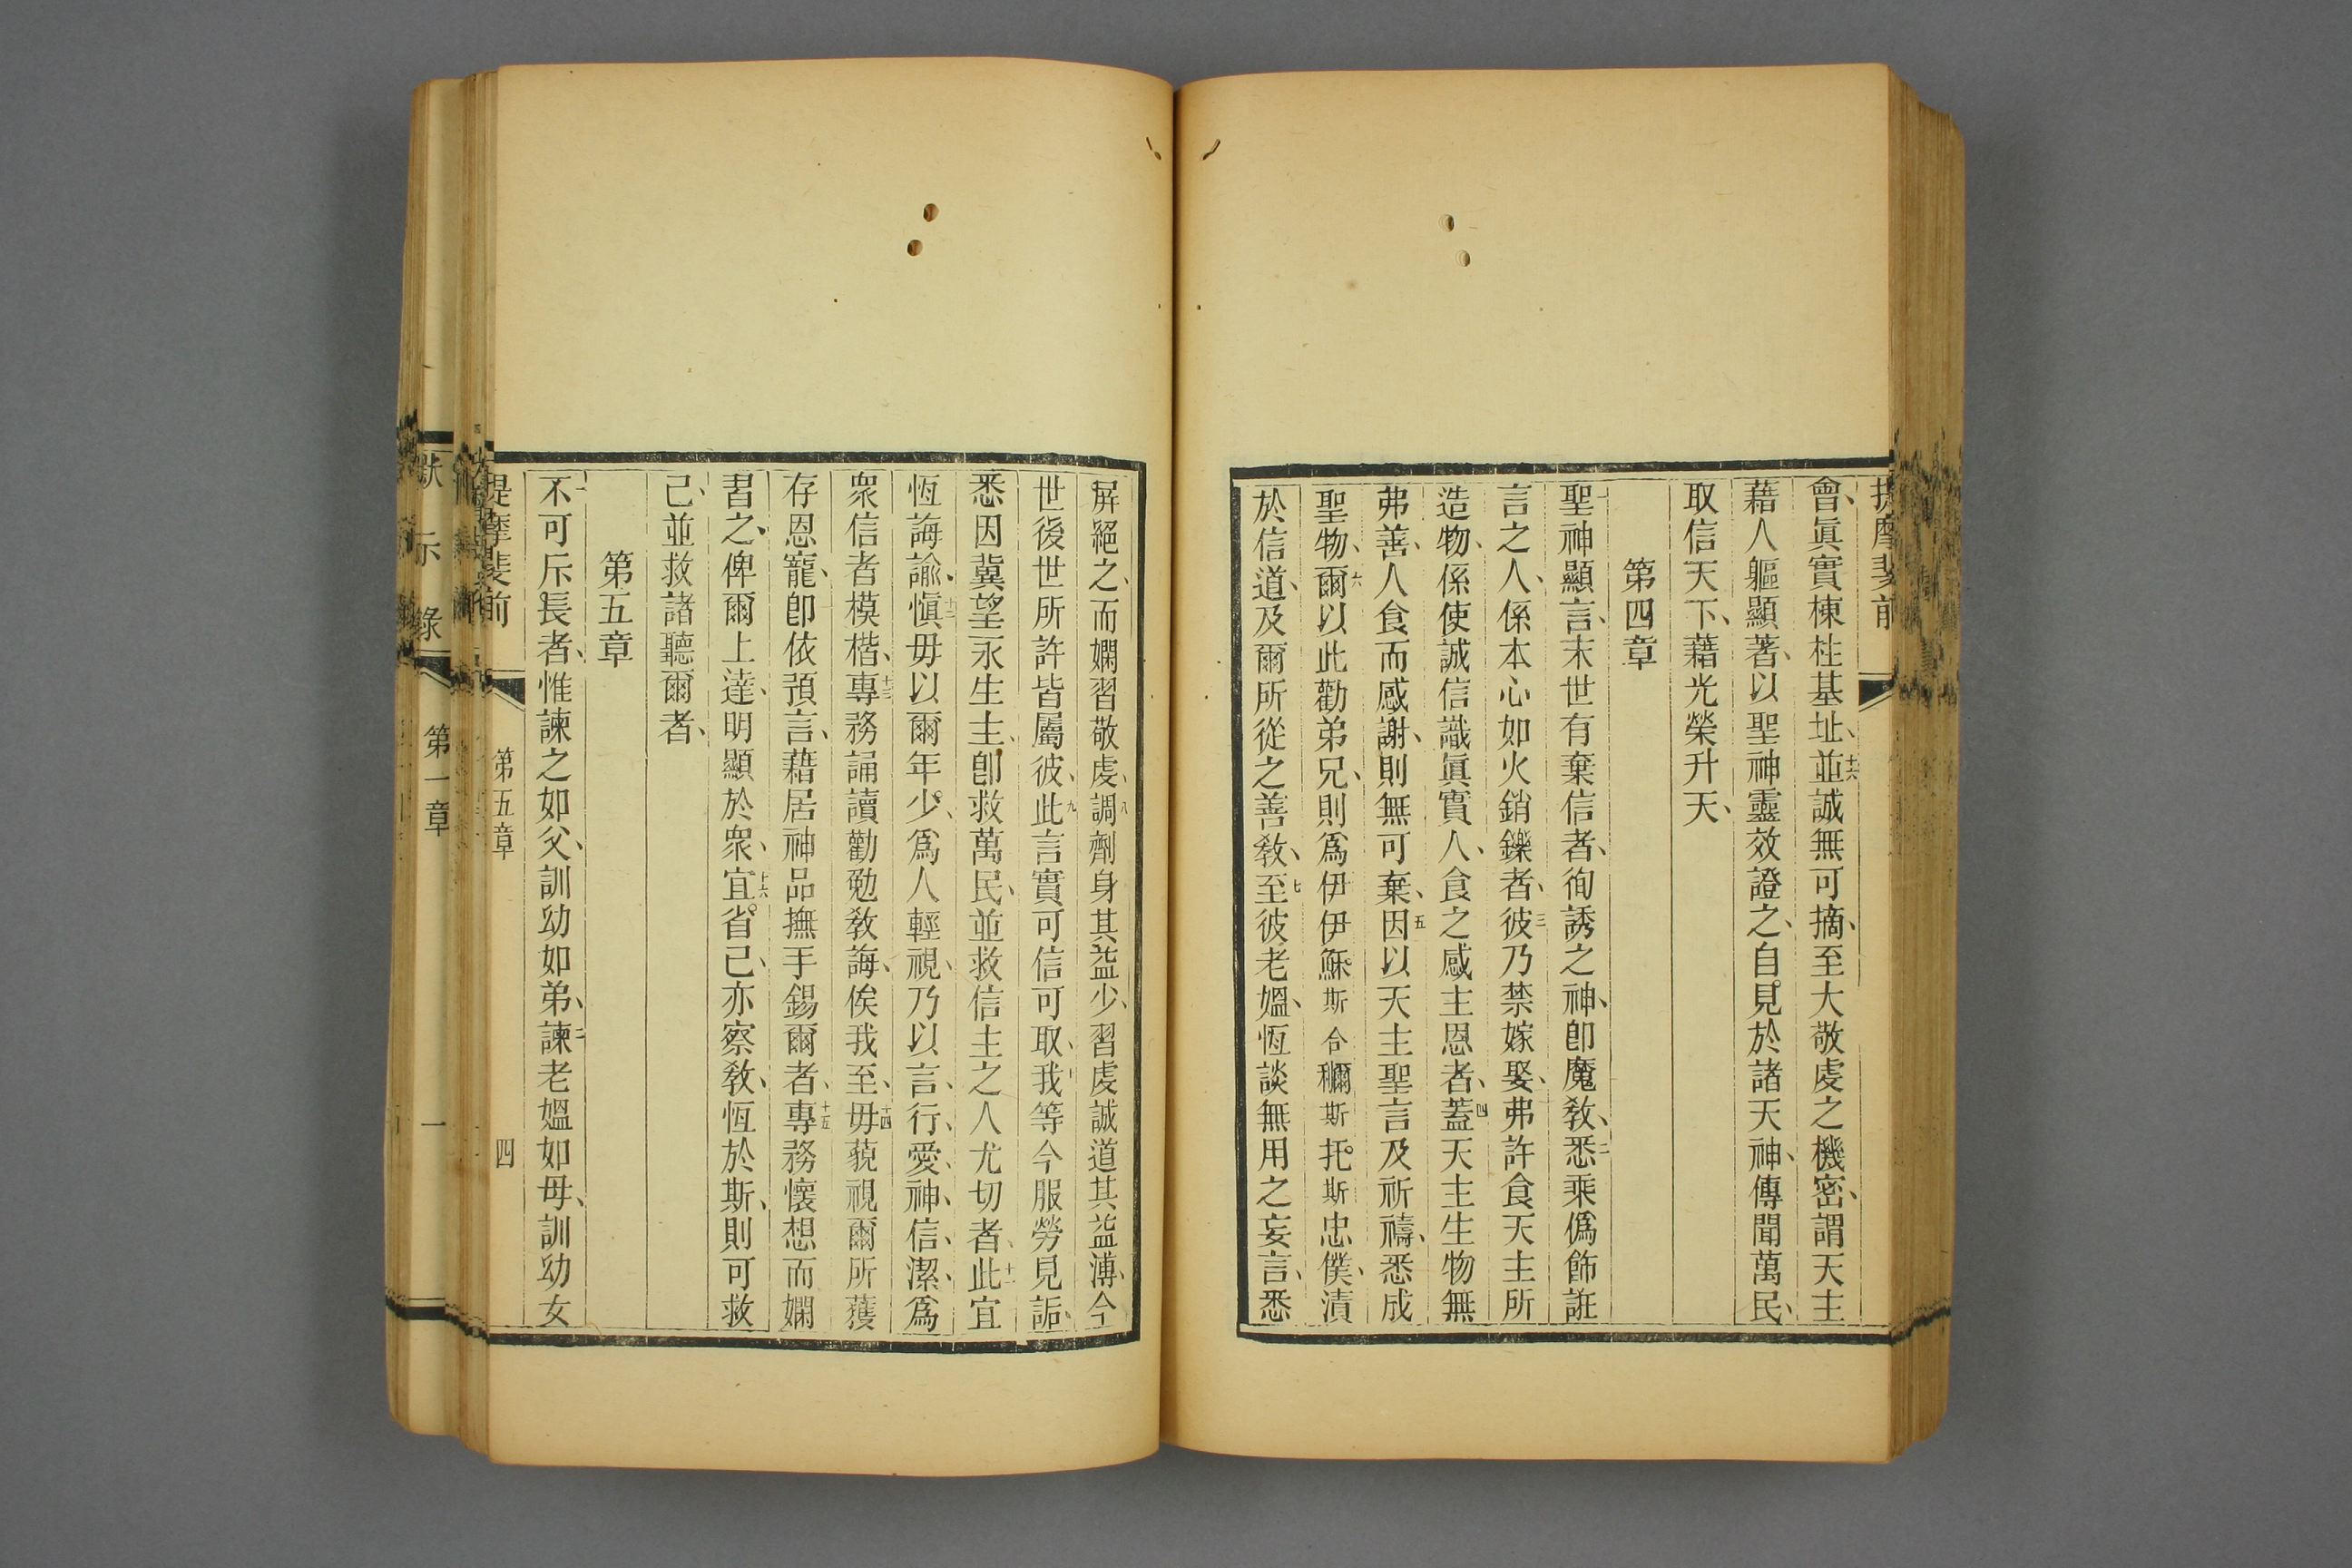 會、眞實棟柱基址、十六並誠無可摘、至大敬虔之機密、謂天主
藉人軀顯著、以聖神靈效證之、自見於諸天神、傳聞萬民、
取信天下、藉光榮升天、
第四章
一聖神顯言、末世有棄信者、徇誘之神、卽魔敎、二悉乘僞飾誑
言之人、係本心如火銷鑠者、三彼乃禁嫁娶、弗許食天主所
造物、係使誠信識眞實人、食之感主恩者、四蓋天主生物無
弗善、人食而感謝、則無可棄、五因以天主聖言及祈禱、悉成
聖物、六爾以此勸弟兄、則爲伊伊穌斯合穪斯托斯忠僕、漬
於信道、及爾所從之善敎、七至彼老媼、恆談無用之妄言、悉
屛絕之、而嫻習敬虔、八調劑身其益少、習虔誠道其益溥、今
世後世所許皆屬彼、九此言實可信可取、十我等今服勞見詬、
悉因冀望永生主、卽救萬民、並救信主之人尤切者、十一此宜
恆誨諭、十二愼毋以爾年少、爲人輕視、乃以言、行、愛、神、信、潔、爲
衆信者模楷、十三專務誦讀勸勉敎誨、俟我至、十四毋藐視爾所獲
存恩寵、卽依預言、藉居神品撫手錫爾者、十五專務懷想而嫻
習之、俾爾上達、明顯於衆、十六宜省己、亦察敎、恆於斯、則可救
己、並救諸聽爾者、
第五章
一不可斥長者、惟諫之如父、訓幼如弟、二諫老媼如母、訓幼女
提摩斐前
第五章
四
第一章
一